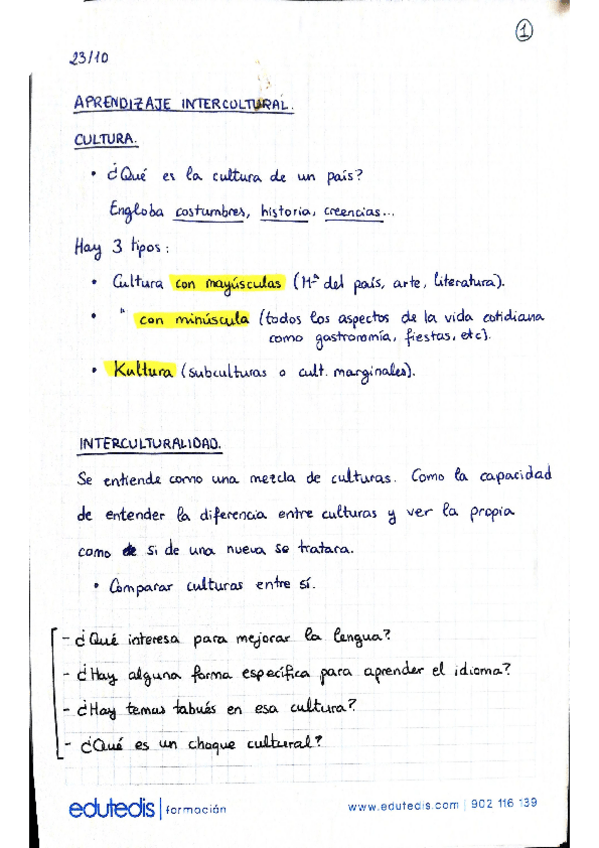 1
23/10
APRENDIZAJE INTERCULTURAL.
CULTURA.
• ¿Qué es la cultura de un país?
Engloba costumbres, historia, creencias...
Hay 3 tipos:
• Cultura con mayúsculas (Hª del país, arte, literatura).
• " con minúscula (todos los aspectos de la vida cotidiana
como gastronomía, fiestas, etc).
• Kultura (subculturas o cult. marginales).
INTERCULTURALIDAD.
Se entiende como una mezcla de culturas. Como la capacidad
de entender la diferencia entre culturas y ver la propia
como si de una nueva se tratara.
• Comparar culturas entre sí.
- ¿Qué interesa para mejorar la lengua?
- ¿Hay alguna forma específica para aprender el idioma?
- ¿Hay temas tabués en esa cultura?
- ¿Qué es un choque cultural?
edutedis | formación
www.edutedis.com | 902 116 139